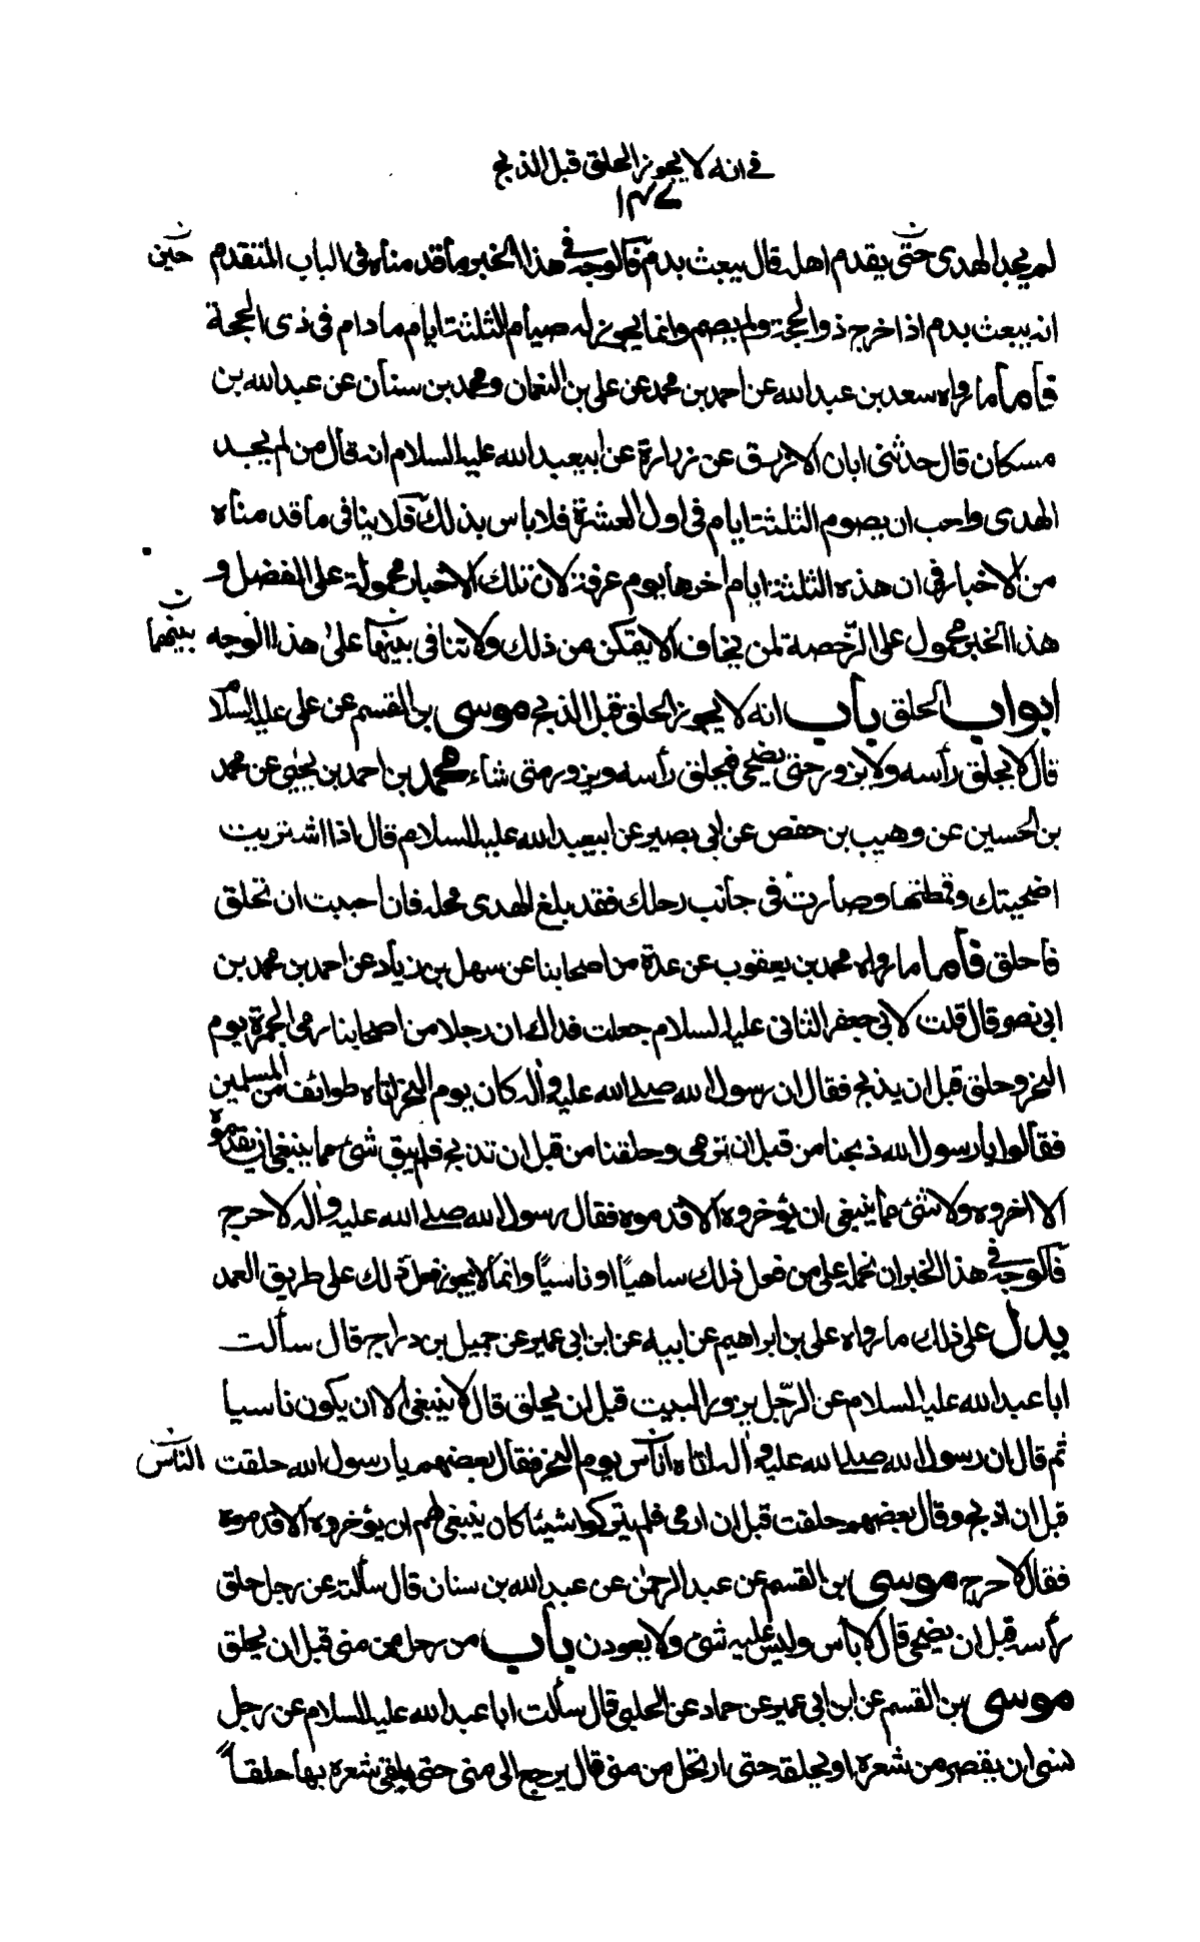 في انه لا يجوز الحلق قبل الذبح
١٤٧
لم يجد الهدى حتى يقدم اهله قال يبعث بدم فالوجه في هذا الخبر ما قدمناه في الباب المتقدم حين
انه يبعث بدم اذا خرج ذو الحجة ولم يصم وانما يجوز له صيام الثلثة ايام ما دام في ذى الحجة
فأما ما رواه سعد بن عبد الله عن احمد بن محمد عن على بن النعمان ومحمد بن سنان عن عبد الله بن
مسكان قال حدثنى ابان الازرق عن زرارة عن ابيعبد الله عليه السلام انه قال من لم يجد
الهدى واحب ان يصوم الثلثة ايام في اول العشرة فلا باس بذلك فلا ينافى ما قدمناه
من الاخبار في ان هذه الثلثة ايام اخرها يوم عرفة لان تلك الاخبار محمولة على الفضل و
هذا الخبر محمول على الرّخصة لمن يخاف الا يتمكن من ذلك ولا تنافى بينها على هذا الوجه بينهما
ابواب الحلق باب انه لا يجوز الحلق قبل الذبح موسى بن القسم عن على عليه السلام
قال لا يحلق رأسه ولا يزور حتى يضحى فيحلق رأسه ويزور متى شاء محمد بن احمد بن يحيى عن محمد
بن الحسين عن وهيب بن حفص عن ابى بصير عن ابيعبد الله عليه السلام قال اذا اشتريت
اضحيتك وقمطتها وصارت في جانب رحلك فقد بلغ الهدى محله فان احببت ان تحلق
فاحلق فأما ما رواه محمد بن يعقوب عن عدة من اصحابنا عن سهل بن زياد عن احمد بن محمد بن
ابى نصر قال قلت لابى جعفر الثانى عليه السلام جعلت فداك ان رجلا من اصحابنا رمى الجمرة يوم
النحر وحلق قبل ان يذبح فقال ان رسول الله صلى الله عليه واله كان يوم النحر اتاه طوائف من المسلمين
فقالوا يا رسول الله ذبحنا من قبل ان نرمى وحلقنا من قبل ان نذبح فلم يبق شئ مما ينبغى ان يقدموه
الا اخروه ولا شئ مما ينبغى ان يؤخروه الا قدموه فقال رسول الله صلى الله عليه واله لا حرج
فالوجه في هذا الخبر ان نحمله على من فعل ذلك ساهيًا او ناسيًا وانما لا يجوز فعل ذلك على طريق العمد
يدل على ذلك ما رواه على بن ابراهيم عن ابيه عن ابن ابى عمير عن جميل بن دراج قال سألت
ابا عبد الله عليه السلام عن الرّجل يزور البيت قبل ان يحلق قال لا ينبغى الا ان يكون ناسيا
ثم قال ان رسول الله صلى الله عليه واله اتاه اناس يوم النحر فقال بعضهم يا رسول الله حلقت الناس
قبل ان اذبح وقال بعضهم حلقت قبل ان ارمى فلم يتركوا شيئا كان ينبغى لهم ان يؤخروه الا قدموه
فقال لا حرج موسى بن القسم عن عبد الرحمن عن عبد الله بن سنان قال سألته عن رجل حلق
رأسه قبل ان يضحى قال لا بأس وليس عليه شئ ولا يعودن باب من رحل من منى قبل ان يحلق
موسى بن القسم عن ابن ابى عمير عن حماد عن الحلبى قال سألت ابا عبد الله عليه السلام عن رجل
نسى ان يقصر من شعره او يحلقه حتى ارتحل من منى قال يرجع الى منى حتى يلقى شعره بها حلقاً